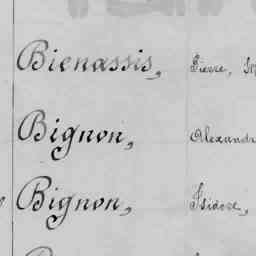 Bienassis, Pierre,
Bignon, Alexandr
Bignon, Isidore,